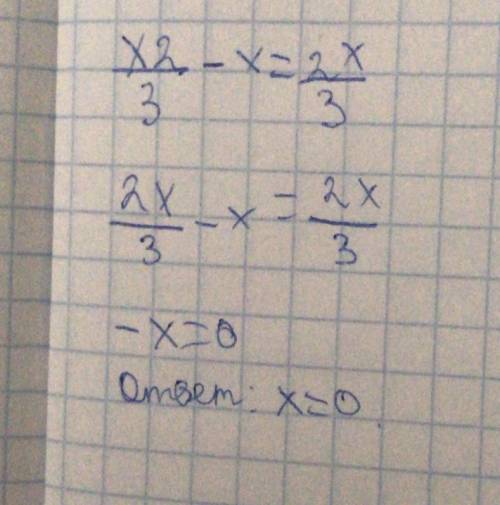 x2/3 - x = 2x/3
2x/3 - x = 2x/3
-x=0
Ответ: x=0.